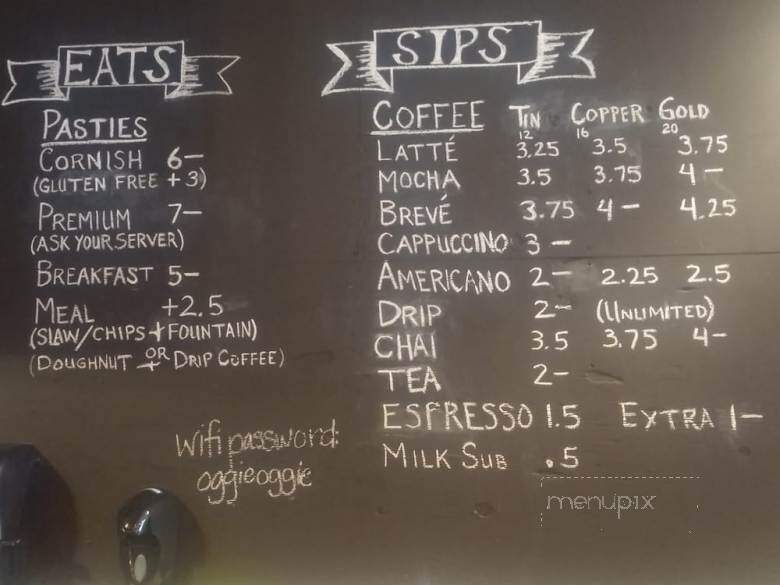 EATS
PASTIES
CORNISH 6—
(GLUTEN FREE + 3)
PREMIUM 7—
(ASK YOUR SERVER)
BREAKFAST 5—
MEAL +2.5
(SLAW/CHIPS + FOUNTAIN)
(DOUGHNUT OR DRIP COFFEE)
Wifi password:
oggieoggie
SIPS
COFFEE TIN COPPER GOLD
12 16 20
LATTÉ 3.25 3.5 3.75
MOCHA 3.5 3.75 4—
BREVÉ 3.75 4— 4.25
CAPPUCCINO 3—
AMERICANO 2— 2.25 2.5
DRIP 2— (UNLIMITED)
CHAI 3.5 3.75 4—
TEA 2—
ESPRESSO 1.5 EXTRA 1—
MILK SUB .5
menupix